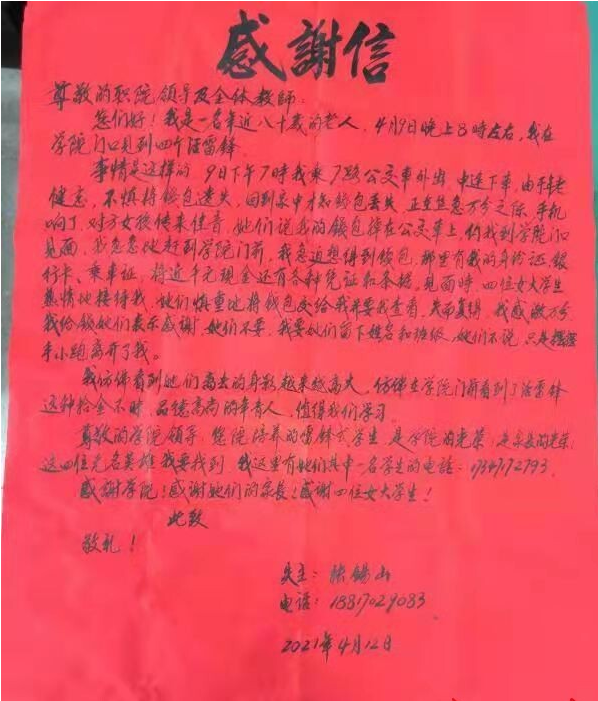 感謝信
尊敬的职院领导及全体教师:
您们好!我是一名年近八十歲的老人,4月9日晚上8時左右,我在
学院门口見到四个活雷锋。
事情是这样的 9日下午7時我乘7路公交車外出,中途下車,由于年老
健忘,不慎将钱包遗失,回到家中才知钱包丢失,正在焦急万分之际,手机
响了,对方女孩传来佳音,她们说我的钱包掉在公交車上,约我到学院门口
見面,我急急地赶到学院门前,我急迫想得到钱包,那里有我的身份证、銀
行卡、乘車证,将近千元现金还有各种凭证和条据,見面時,四位女大学生
热情地接待我,她们慎重地将钱包交给我并要我查看,失而复得,我感激万分,
我给钱她们表示感謝,她们不要,我要她们留下姓名和班级,她们不说,只是摆摆
手小跑离开了我。
我仿佛看到她们离去的身影越来越高大,仿佛在学院门前看到了活雷锋
这种拾金不昧,品德高尚的年青人,值得我们学习。
尊敬的学院领导:您院培养的雷锋式学生,是学院的光荣,是家長的光荣,
这四位无名英雄我要找到,我这里有她们其中一名学生的电话:
感謝学院!感謝她们的家長!感謝四位女大学生!
此致
敬礼!
失主:张锡山
电话:18817029083
2021年4月12日